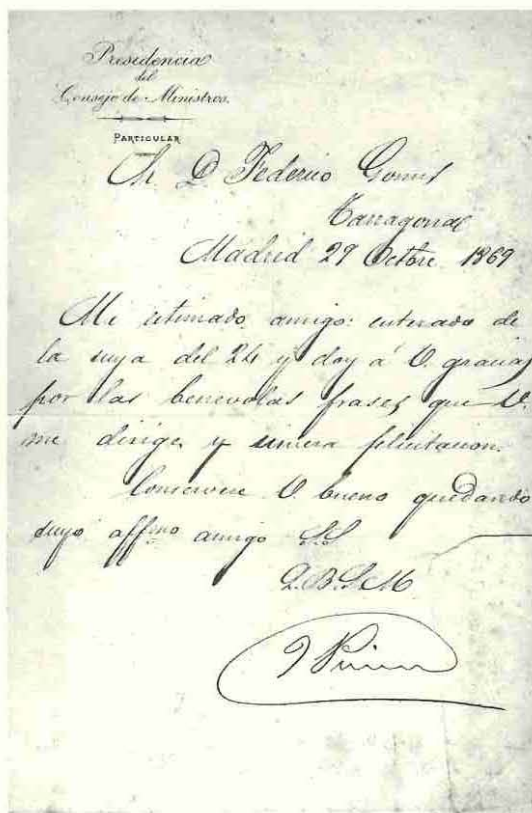 Presidencia
del
Consejo de Ministros.
PARTICULAR
Sr. D. Federico Gomis
Tarragona
Madrid 29 Octbre. 1869
Mi estimado amigo: enterado de
la suya del 24 y doy á V. gracias
por las benevolas frases que V.
me dirige y sincera felicitacion.
Conservese V. bueno quedando
suyo affmo amigo S.S.
Q.B.S.M.
J Prim